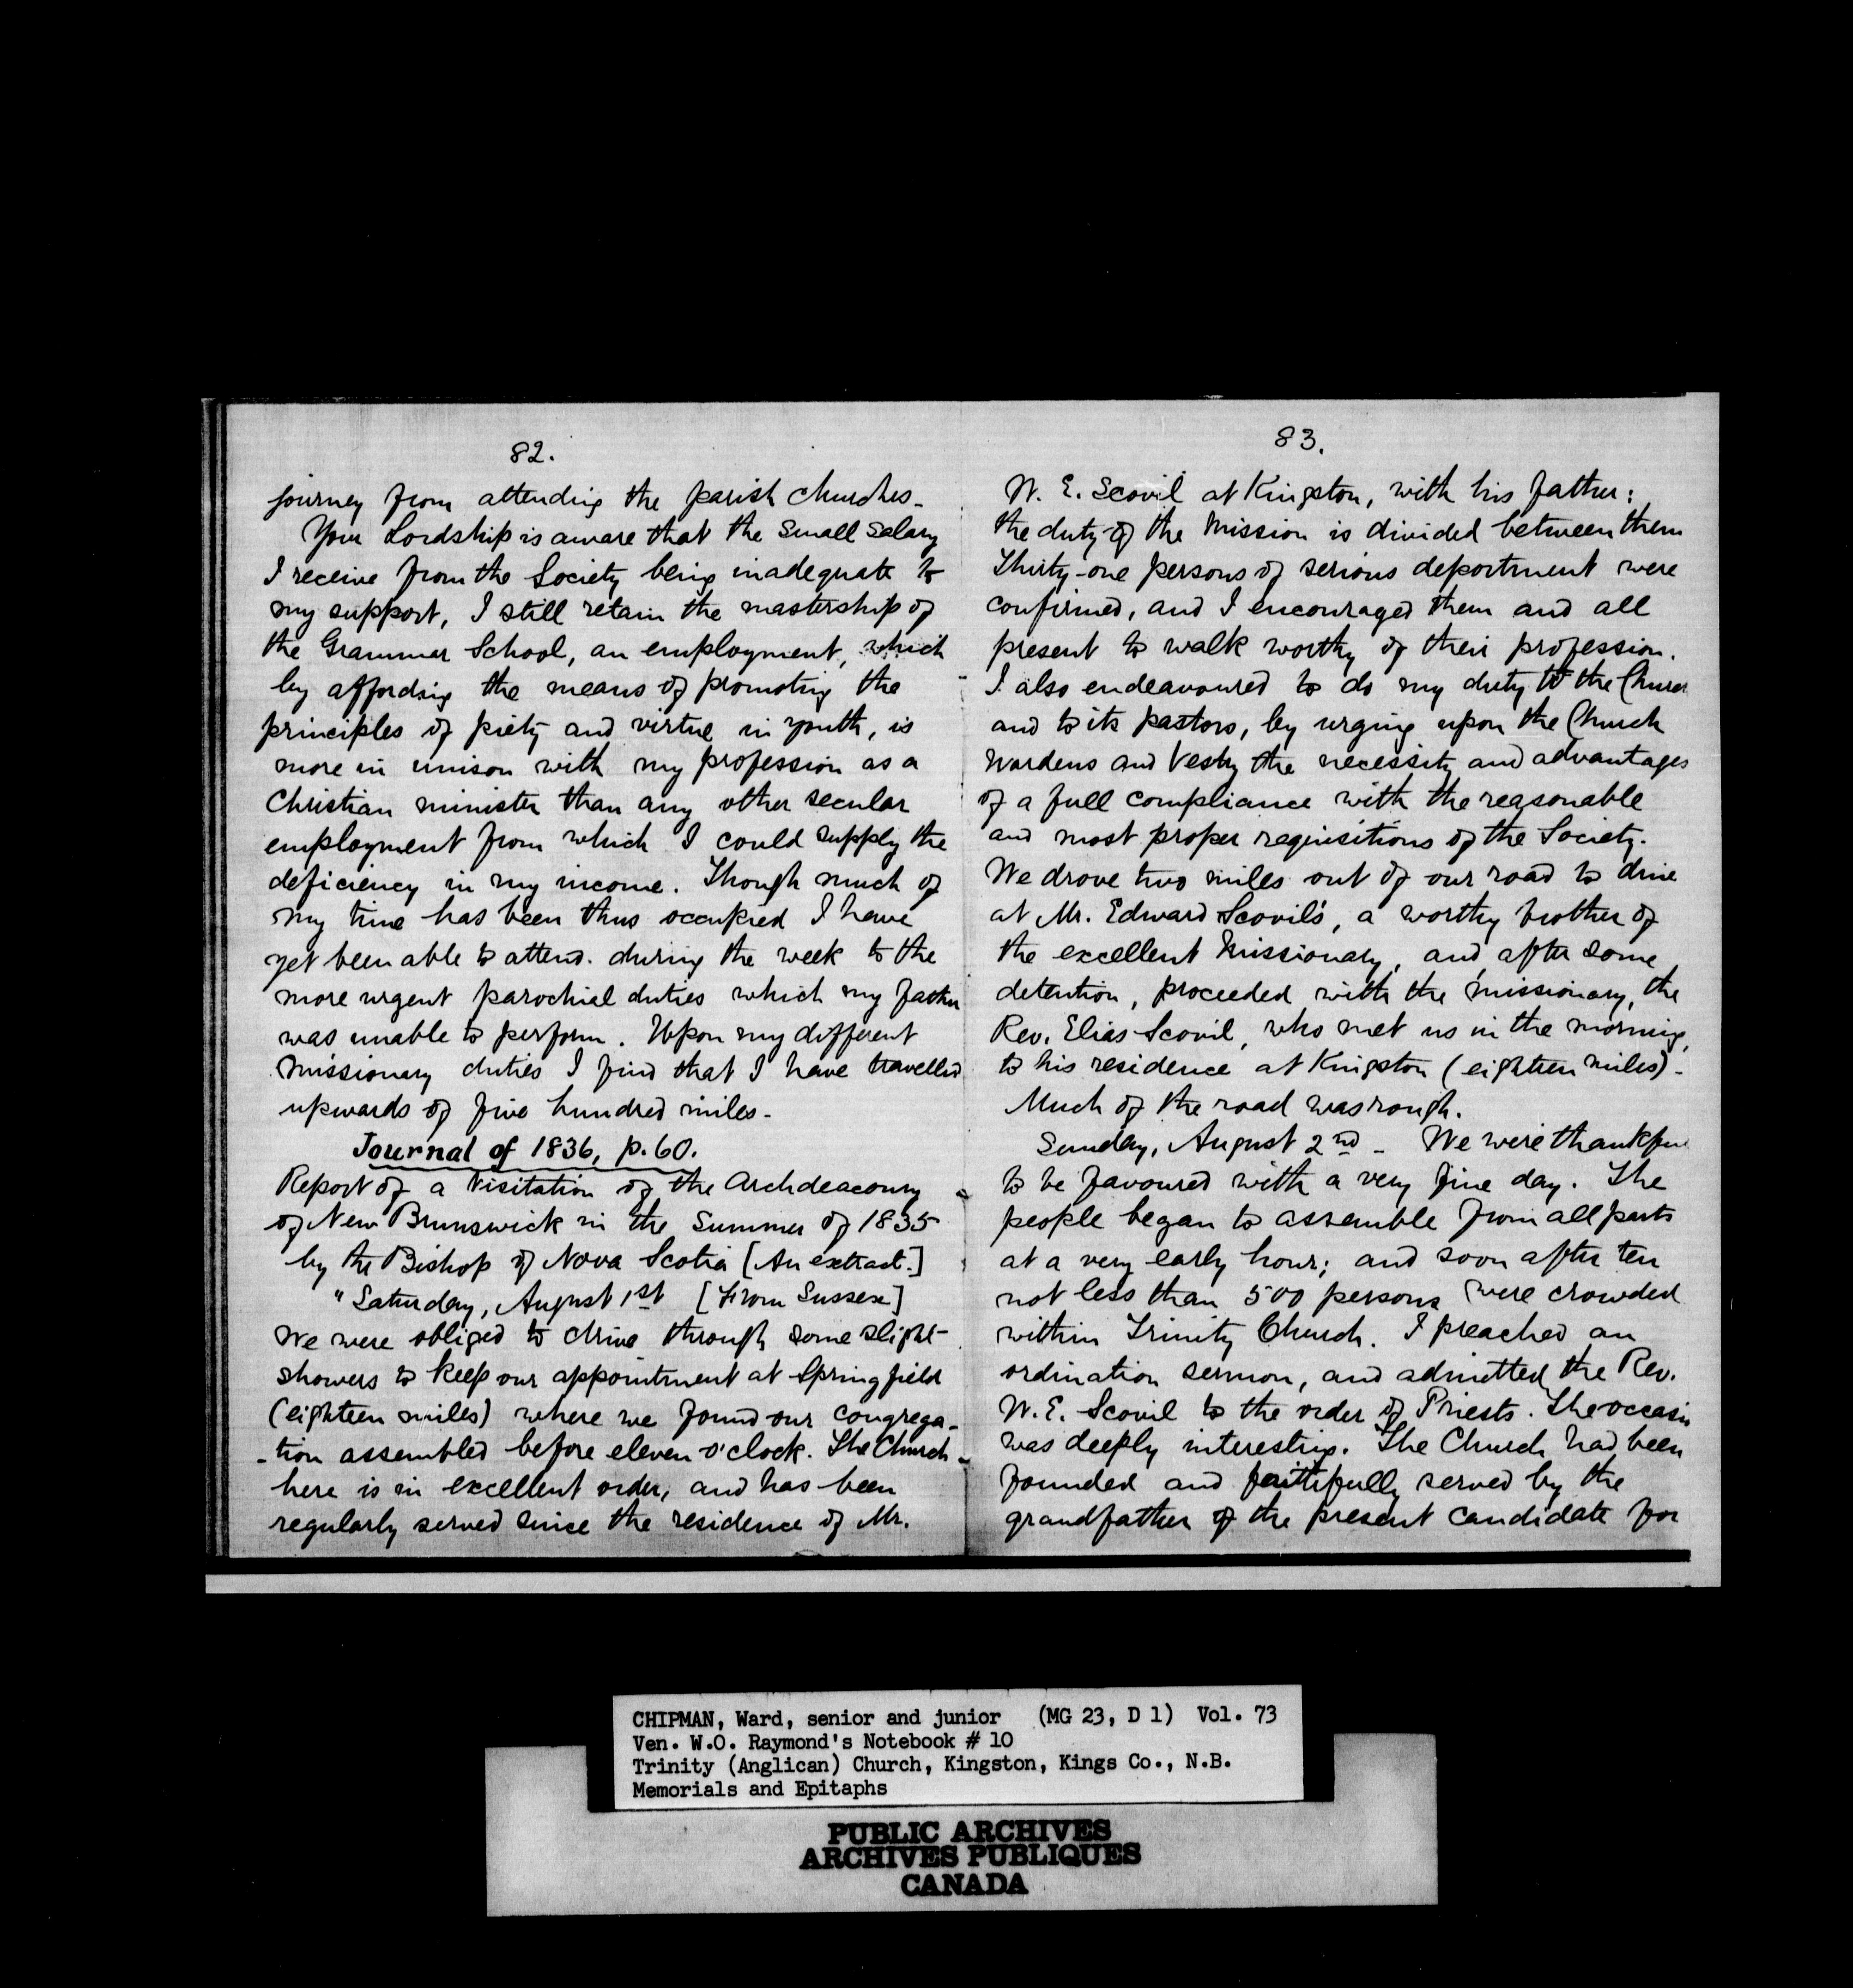 82.
journey from attending the parish churches.
Your Lordship is aware that the small salary
I receive from the Society being inadequate to
my support, I still retain the mastership of
the Grammar School, an employment, which
by affording the means of promoting the
principles of piety and virtue in youth, is
more in unison with my profession as a
Christian minister than any other secular
employment from which I could supply the
deficiency in my income. Though much of
my time has been thus occupied I have
yet been able to attend during the week to the
more urgent parochial duties which my father
was unable to perform. Upon my different
missionary duties I find that I have travelled
upwards of five hundred miles.
Journal of 1836, p. 60.
Report of a Visitation of the Archdeaconry
of New Brunswick in the Summer of 1835
by the Bishop of Nova Scotia [An extract.]
"Saturday, August 1st [From Sussex]
We were obliged to drive through some slight
showers to keep our appointment at Springfield
(eighteen miles) where we found our congrega-
-tion assembled before eleven o'clock. The Church
here is in excellent order, and has been
regularly served since the residence of Mr.
83.
W. E. Scovil at Kingston, with his father:
the duty of the Mission is divided between them
Thirty-one persons of serious deportment were
confirmed, and I encouraged them and all
present to walk worthy of their profession.
I also endeavoured to do my duty to the Church
and to its pastors, by urging upon the Church
Wardens and Vestry the necessity and advantages
of a full compliance with the reasonable
and most proper requisitions of the Society.
We drove two miles out of our road to dine
at Mr. Edward Scovil's, a worthy brother of
the excellent Missionary, and after some
detention, proceeded with the missionary, the
Rev. Elias Scovil, who met us in the morning,
to his residence at Kingston (eighteen miles).
Much of the road was rough.
Sunday, August 2nd - We were thankful
to be favoured with a very fine day. The
people began to assemble from all parts
at a very early hour; and soon after ten
not less than 500 persons were crowded
within Trinity Church. I preached an
ordination sermon, and admitted the Rev.
W. E. Scovil to the order of Priests. The occasion
was deeply interesting. The Church had been
founded and faithfully served by the
grandfather of the present candidate for
CHIPMAN, Ward, senior and junior (MG 23, D 1) Vol. 73
Ven. W.O. Raymond's Notebook # 10
Trinity (Anglican) Church, Kingston, Kings Co., N.B.
Memorials and Epitaphs
PUBLIC ARCHIVES
ARCHIVES PUBLIQUES
CANADA